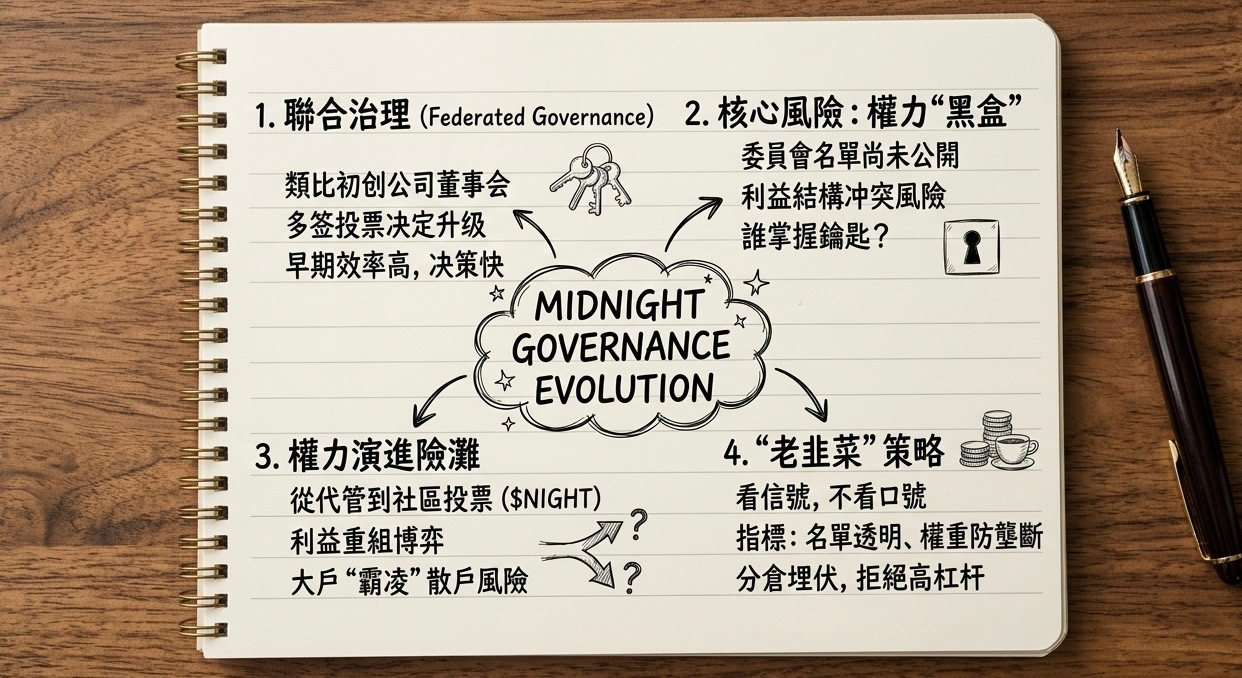 1. 聯合治理 (Federated Governance)
類比初创公司董事会
多签投票决定升级
早期效率高, 决策快
2. 核心風險 : 權力“黑盒”
委員會名單尚未公開
利益結構冲突風險
誰掌握鑰匙?
MIDNIGHT
GOVERNANCE
EVOLUTION
3. 權力演進險灘
從代管到社區投票 ($NIGHT)
利益重組博弈
大戶“霸凌”散戶風險
?
?
4. “老韭菜” 策略
看信號, 不看口號
指標: 名單透明、權重防壟斷
分倉埋伏, 拒絕高杠杆